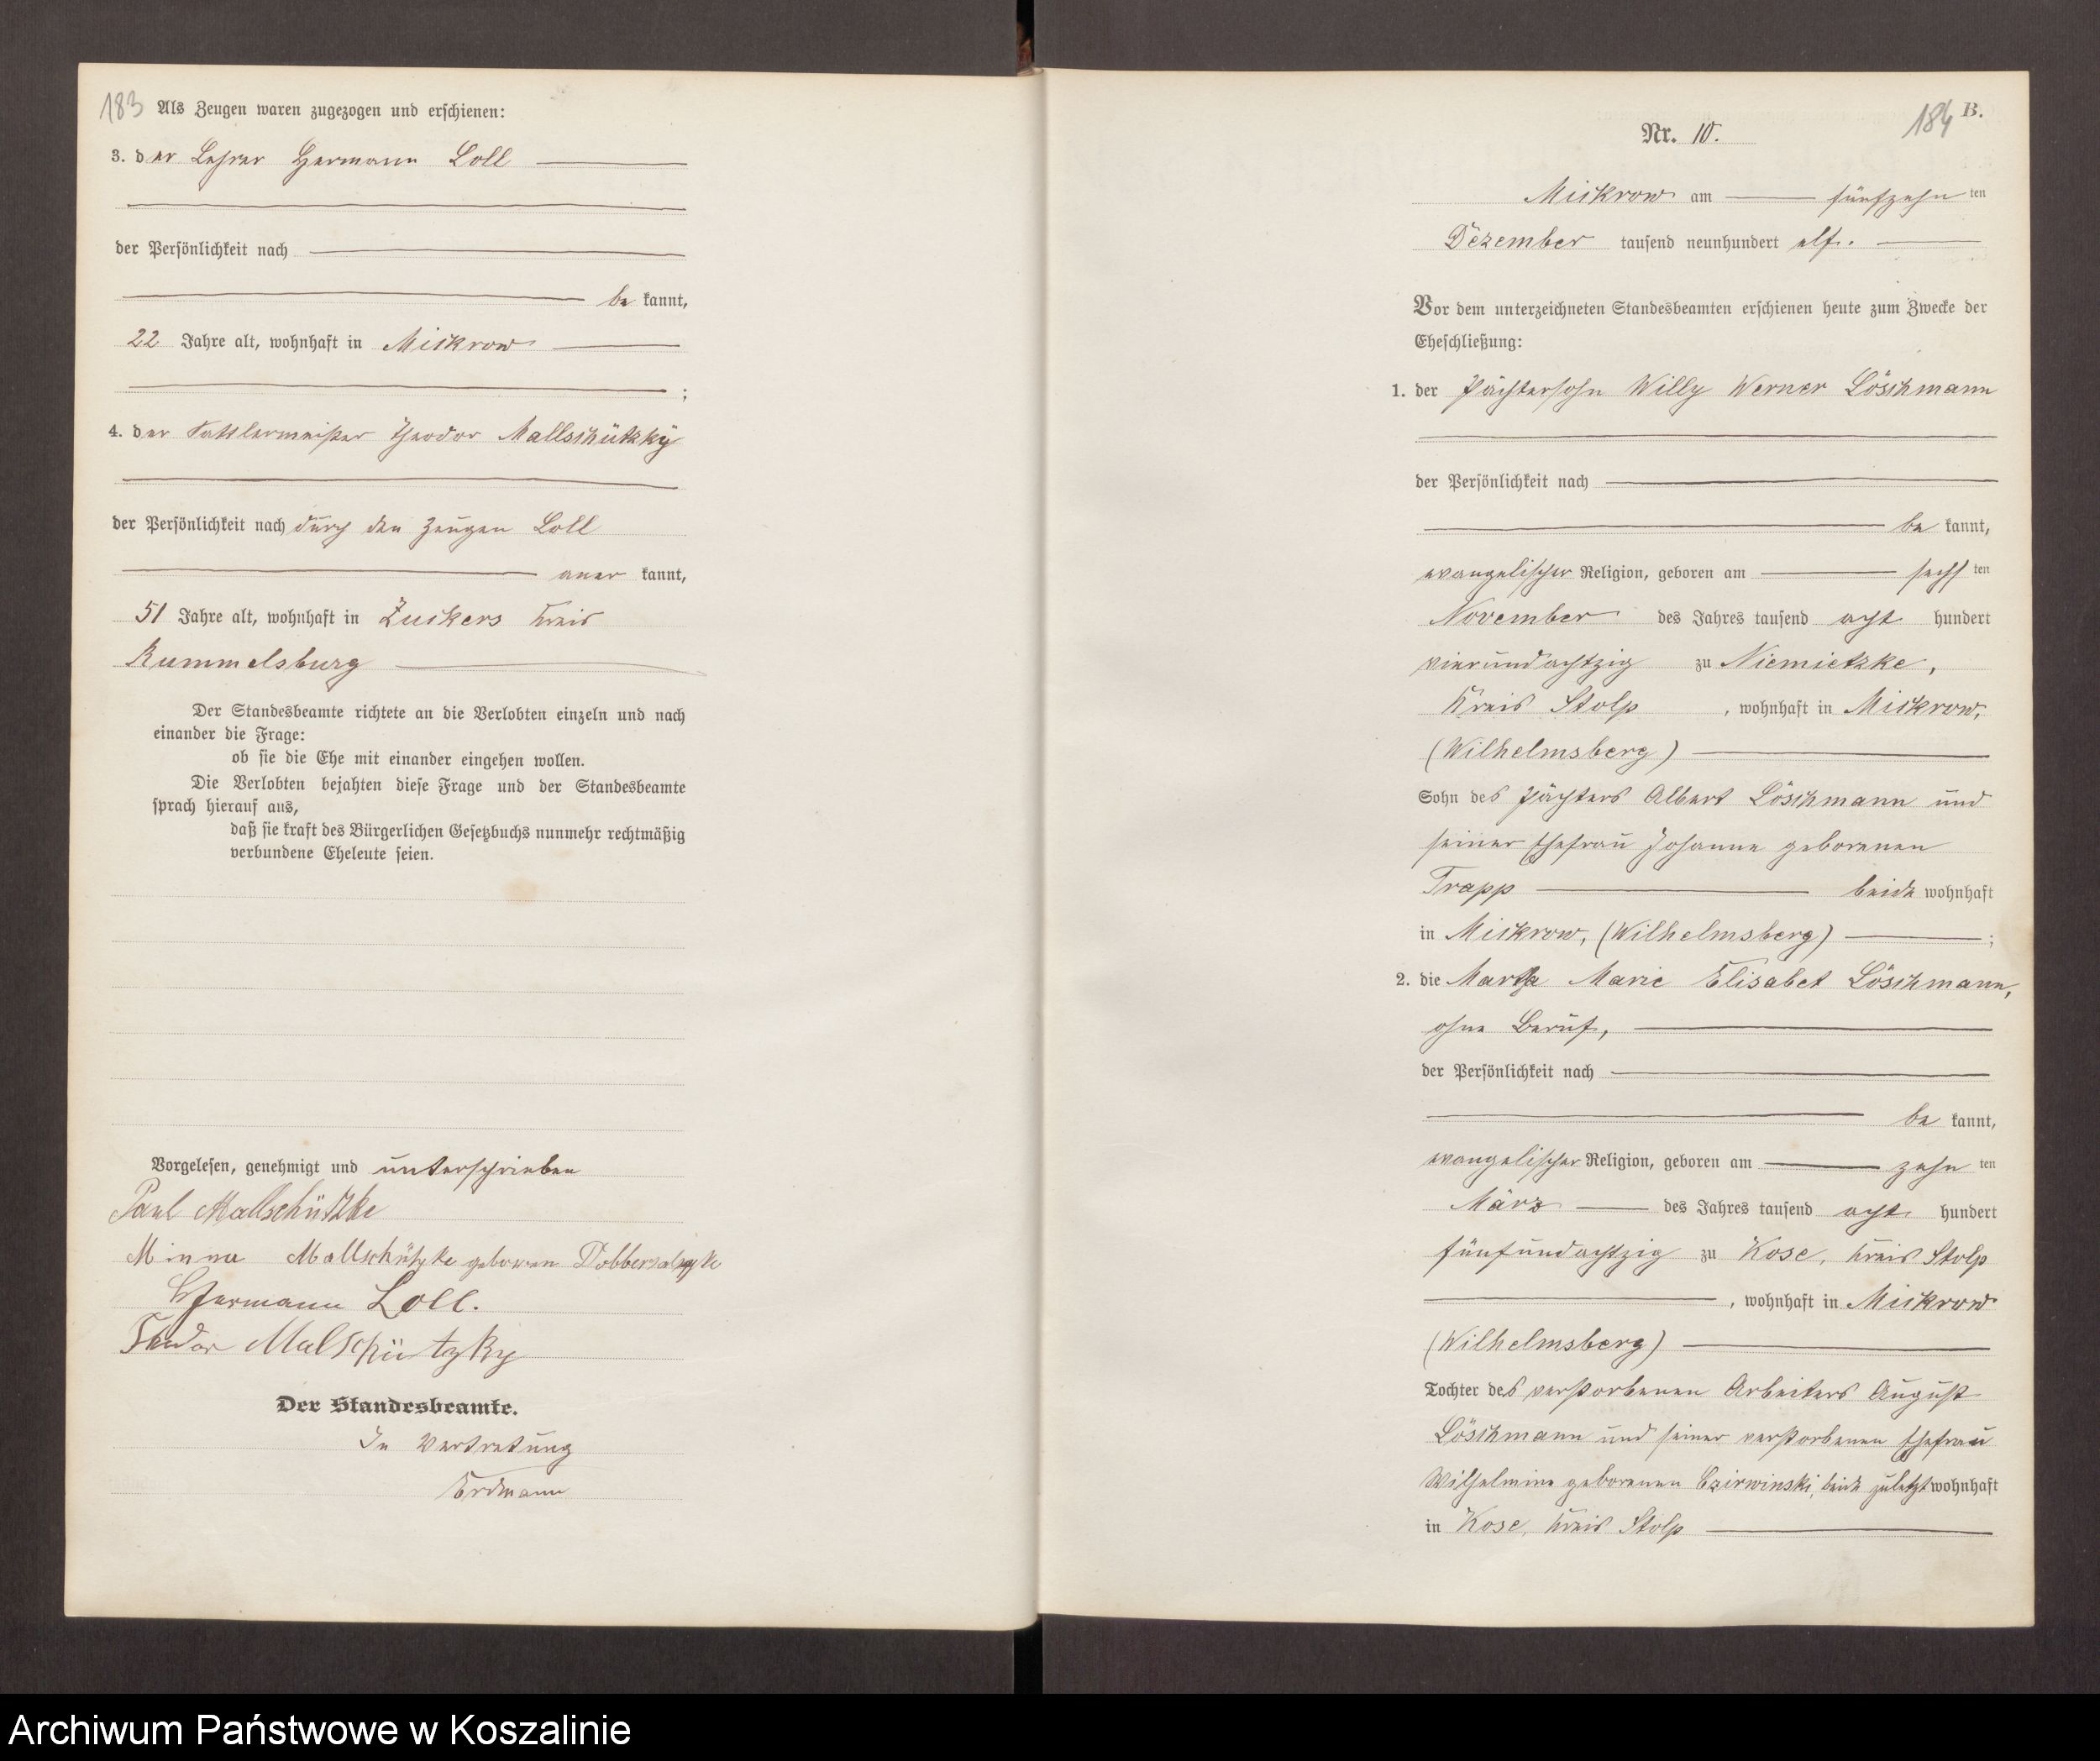 183 Als Zeugen waren zugezogen und erschienen:
3. der Lehrer Hermann Loll
der Persönlichkeit nach
be kannt,
22 Jahre alt, wohnhaft in Mickrow
;
4. der Sattlermeister Theodor Mallschützky
der Persönlichkeit nach durch den Zeugen Loll
aner kannt,
51 Jahre alt, wohnhaft in Zuckers Kreis
Rummelsburg
Der Standesbeamte richtete an die Verlobten einzeln und nach
einander die Frage:
ob sie die Ehe mit einander eingehen wollen.
Die Verlobten bejahten diese Frage und der Standesbeamte
sprach hierauf aus,
daß sie kraft des Bürgerlichen Gesetzbuchs nunmehr rechtmäßig
verbundene Eheleute seien.
Vorgelesen, genehmigt und unterschrieben
Paul Mallschützke
Minna Mallschützke geboren
Hermann Loll.
Theodor Malschützky
Der Standesbeamte.
In Vertretung
Erdmann
184 B.
Nr. 10.
Mickrow am fünfzehn ten
Dezember tausend neunhundert elf.
Vor dem unterzeichneten Standesbeamten erschienen heute zum Zwecke der
Eheschließung:
1. der Pächtersohn Willy Werner Löschmann
der Persönlichkeit nach
be kannt,
evangelischer Religion, geboren am sechs ten
November des Jahres tausend acht hundert
vierundachtzig zu Niemietzke,
Kreis Stolp, wohnhaft in Mickrow,
(Wilhelmsberg)
Sohn des Pächters Albert Löschmann und
seiner Ehefrau Johanne geborenen
Trapp beide wohnhaft
in Mickrow, (Wilhelmsberg) ;
2. die Martha Marie Elisabet Löschmann,
ohne Beruf,
der Persönlichkeit nach
be kannt,
evangelischer Religion, geboren am zehn ten
März des Jahres tausend acht hundert
fünfundachtzig zu Kose, Kreis Stolp
, wohnhaft in Mickrow
(Wilhelmsberg)
Tochter des verstorbenen Arbeiters August
Löschmann und seiner verstorbenen Ehefrau
Wilhelmine geborenen Czirwinski, beide zuletzt wohnhaft
in Kose, Kreis Stolp
Archiwum Państwowe w Koszalinie